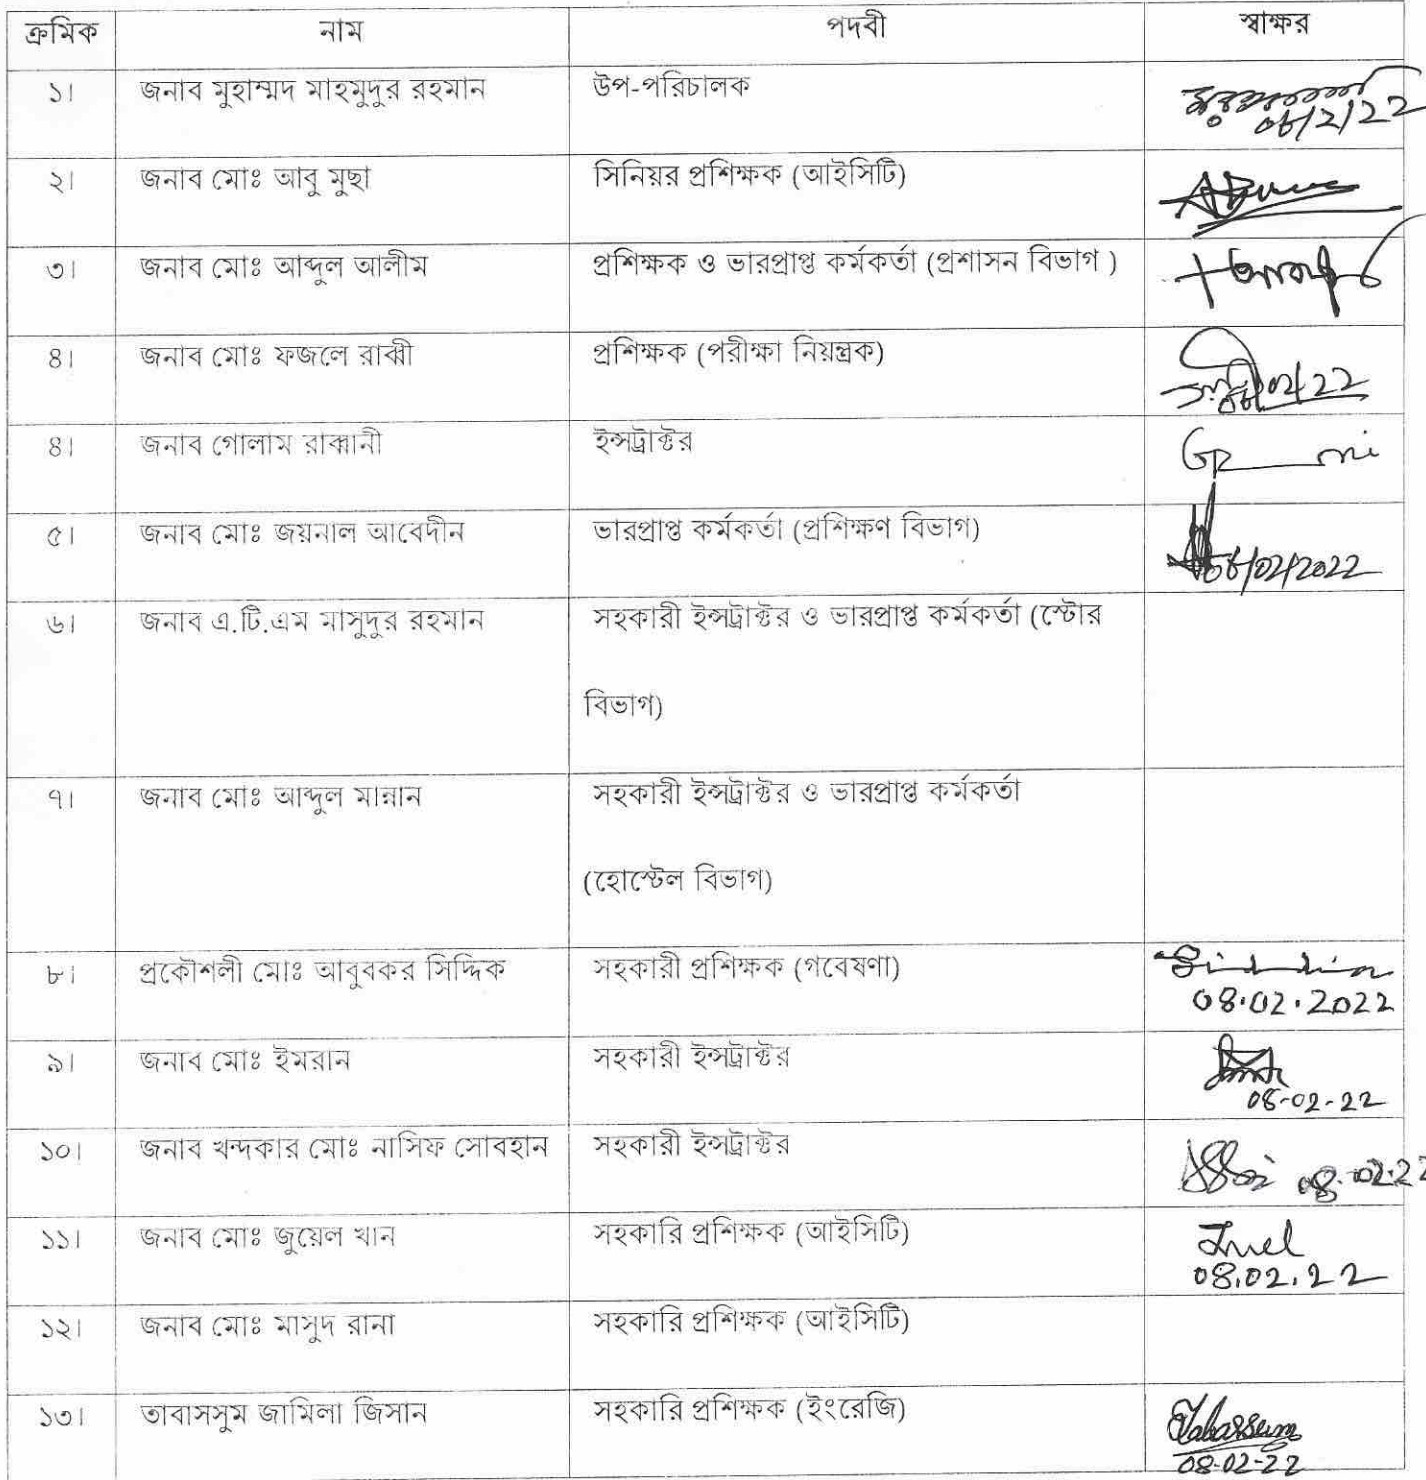 ক্রমিক নাম পদবী স্বাক্ষর
১। জনাব মুহাম্মদ মাহমুদুর রহমান উপ-পরিচালক
০৮/২/২২
২। জনাব মোঃ আবু মুছা সিনিয়র প্রশিক্ষক (আইসিটি)
৩। জনাব মোঃ আব্দুল আলীম প্রশিক্ষক ও ভারপ্রাপ্ত কর্মকর্তা (প্রশাসন বিভাগ )
৪। জনাব মোঃ ফজলে রাব্বী প্রশিক্ষক (পরীক্ষা নিয়ন্ত্রক)
৪। জনাব গোলাম রাব্বানী ইন্সট্রাক্টর
৫। জনাব মোঃ জয়নাল আবেদীন ভারপ্রাপ্ত কর্মকর্তা (প্রশিক্ষণ বিভাগ)
08/02/2022
৬। জনাব এ.টি.এম মাসুদুর রহমান সহকারী ইন্সট্রাক্টর ও ভারপ্রাপ্ত কর্মকর্তা (স্টোর
বিভাগ)
৭। জনাব মোঃ আব্দুল মান্নান সহকারী ইন্সট্রাক্টর ও ভারপ্রাপ্ত কর্মকর্তা
(হোস্টেল বিভাগ)
৮। প্রকৌশলী মোঃ আবুবকর সিদ্দিক সহকারী প্রশিক্ষক (গবেষণা)
08.02.2022
৯। জনাব মোঃ ইমরান সহকারী ইন্সট্রাক্টর
08-02-22
১০। জনাব খন্দকার মোঃ নাসিফ সোবহান সহকারী ইন্সট্রাক্টর
08.02.22
১১। জনাব মোঃ জুয়েল খান সহকারি প্রশিক্ষক (আইসিটি) Juel
08.02.22
১২। জনাব মোঃ মাসুদ রানা সহকারি প্রশিক্ষক (আইসিটি)
১৩। তাবাসসুম জামিলা জিসান সহকারি প্রশিক্ষক (ইংরেজি) Tabassum
08-02-22